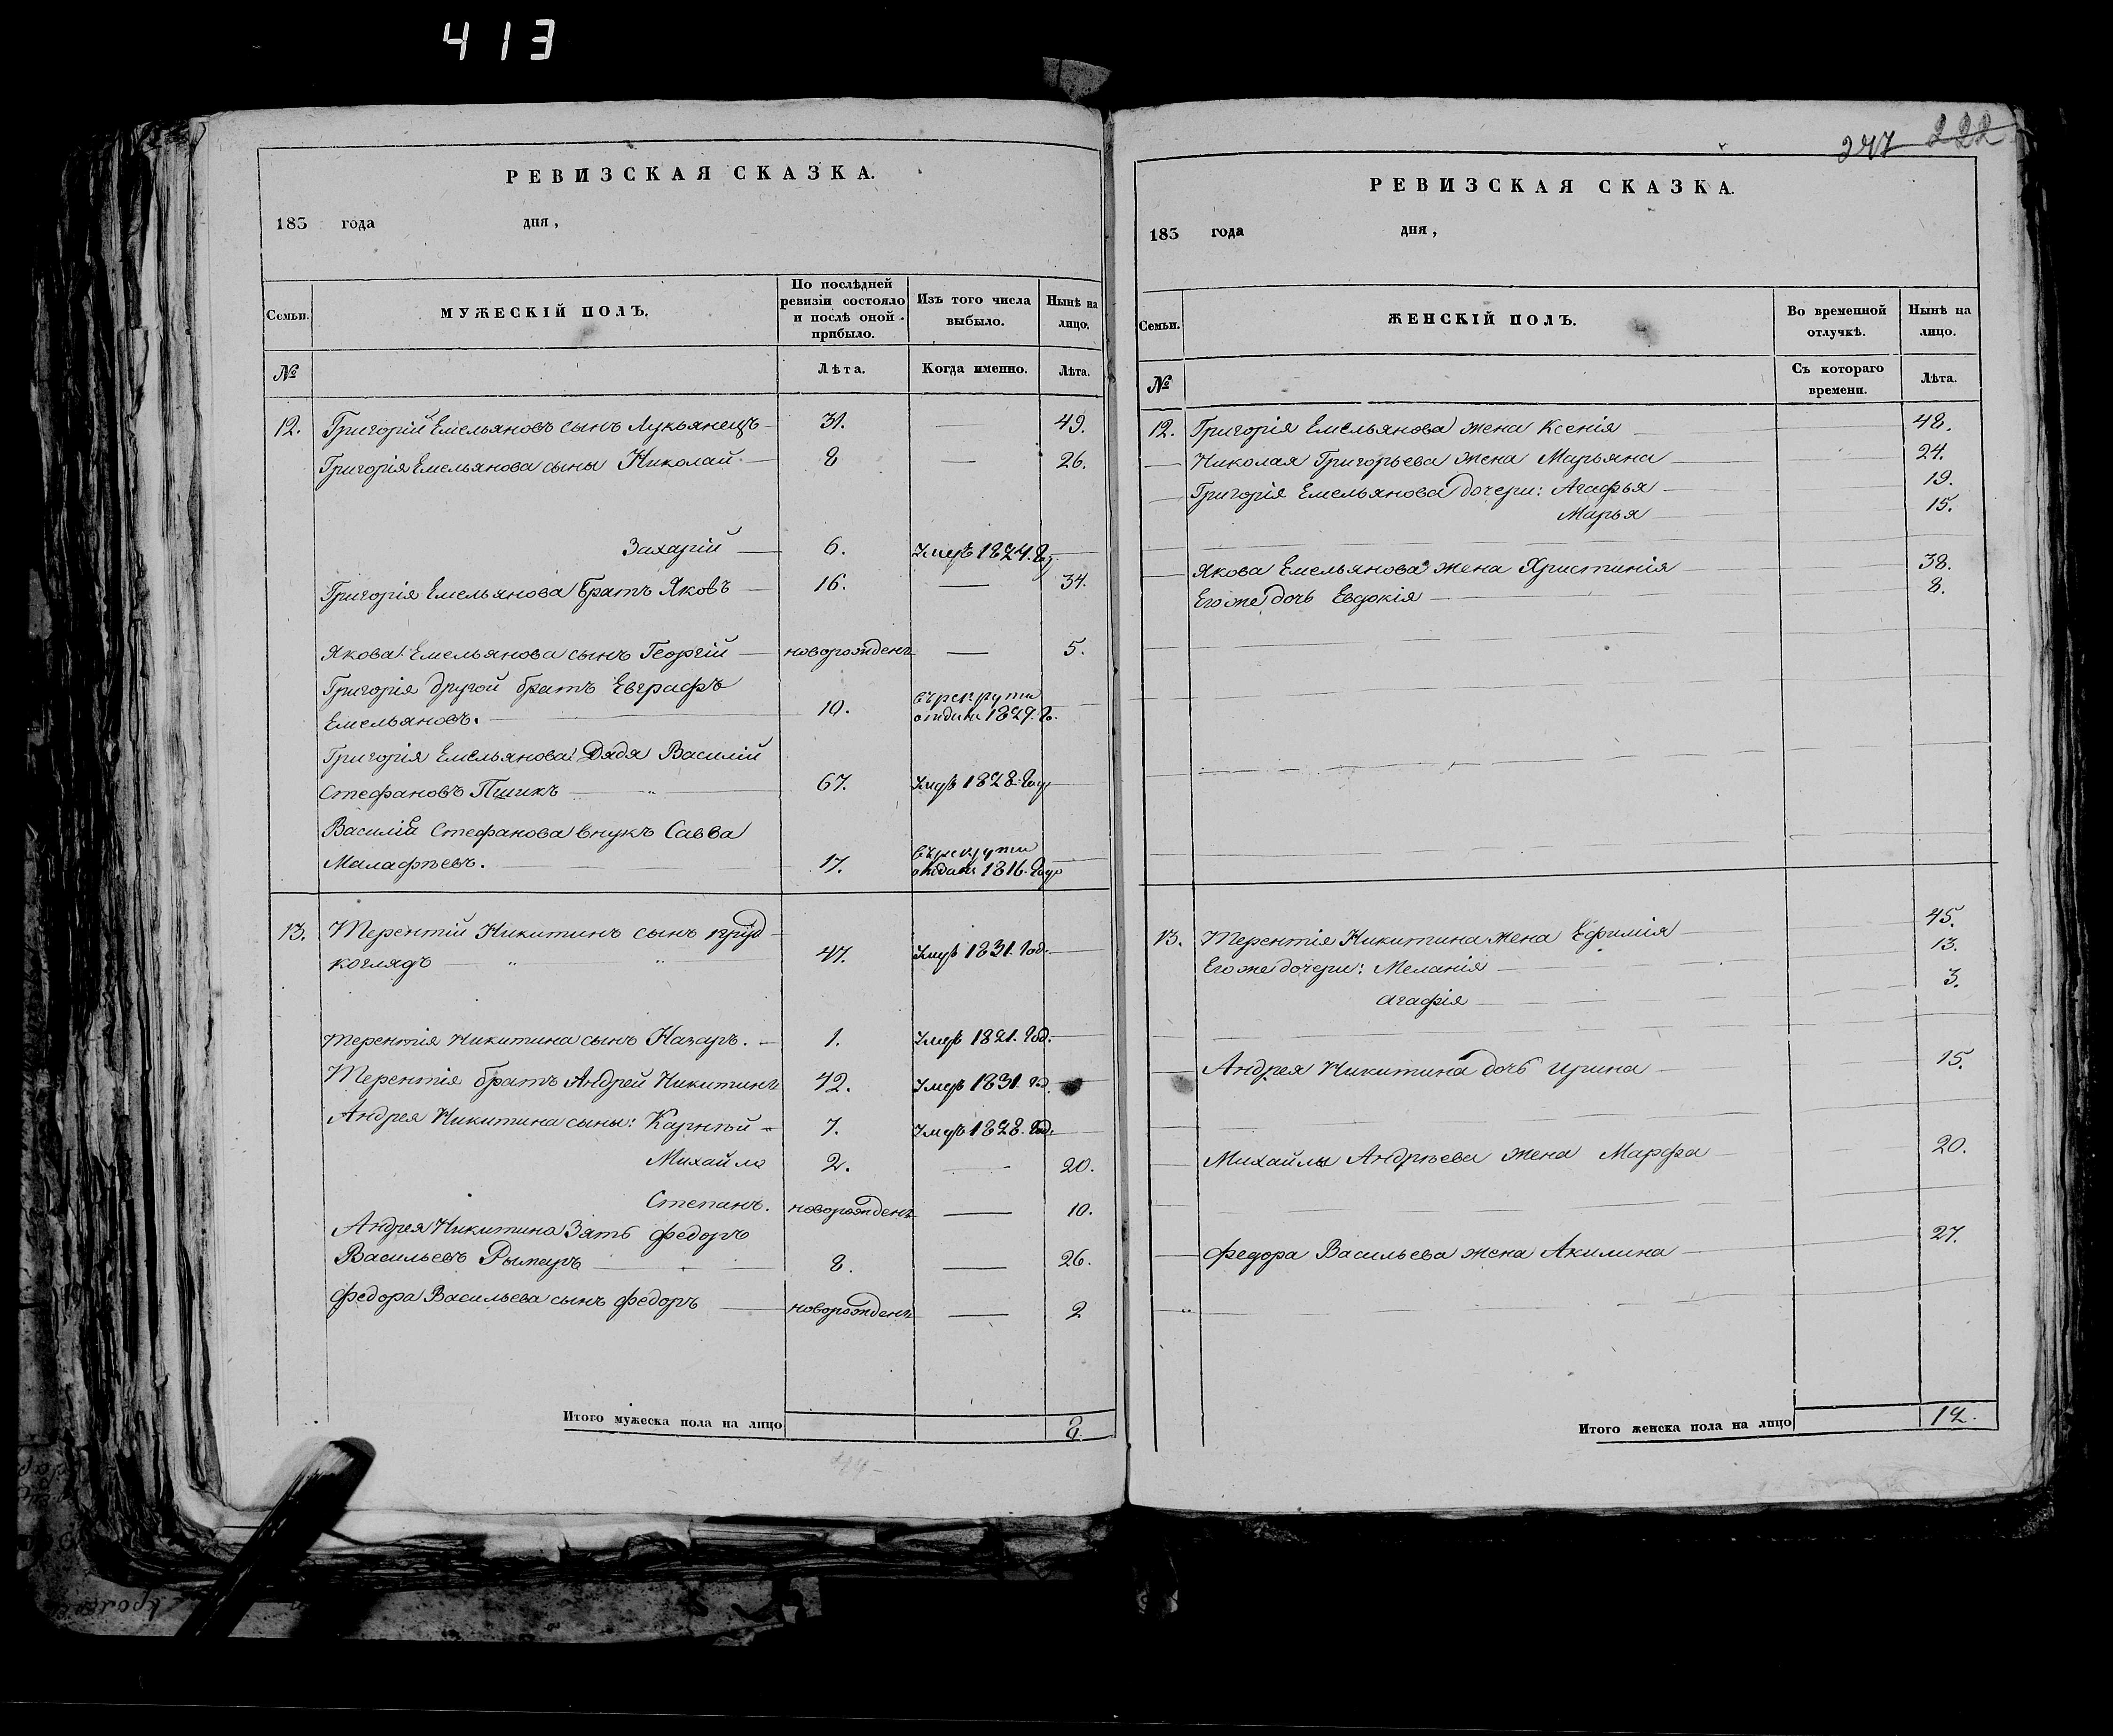 413
РЕВИЗСКАЯ СКАЗКА.
183 года дня,
Семьи. МУЖЕСКІЙ ПОЛЪ. По послѣдней ревизіи состояло и послѣ оной прибыло. Изъ того числа выбыло. Нынѣ на лицо.
№ Лѣта. Когда именно. Лѣта.
12. Григорій Емельяновъ сынъ Лукьянецъ 31. — 49.
Григорія Емельянова сыны Николай 8 — 26.
Захарій 6. Умеръ 1824.
Григорія Емельянова братъ Яковъ 16. — 34.
Якова Емельянова сынъ Георгій новорожденъ — 5.
Григорія другой братъ Евграфъ
Емельяновъ. 10. въ рекруты отданъ 1829. Го.
Григорія Емельянова Дядя Василій
Стефановъ 67. Умеръ 1828. Году
Василія Стефанова внукъ Савва
Малафѣевъ. 17. въ рекруты отданъ 1816. Году
13. Терентій Никитинъ сынъ
коглядъ 47. Умеръ 1831. Год.
Терентія Никитина сынъ Назаръ. 1. Умеръ 1821. Год.
Терентія братъ Андрей Никитинъ 42. Умеръ 1831. Го
Андрея Никитина сыны: Карпѣй 7. Умеръ 1828. Год.
Михайло 2. — 20.
Степанъ. новорожденъ — 10.
Андрея Никитина Зять Федоръ
Васильевъ Рымаръ 8. — 26.
Федора Васильева сынъ Федоръ новорожденъ — 2
Итого мужеска пола на лицо 8.
247 222
РЕВИЗСКАЯ СКАЗКА.
183 года дня,
Семьи. ЖЕНСКІЙ ПОЛЪ. Во временной отлучкѣ. Нынѣ на лицо.
№ Съ котораго времени. Лѣта.
12. Григорія Емельянова жена Ксенія 48.
Николая Григорьева жена Марьяна 24.
Григорія Емельянова дочери: Агафья 19.
Марья 15.
Якова Емельянова жена Христинія 38.
Его же дочь Евдокія 8.
13. Терентія Никитина жена Ефимія 45.
Его же дочери: Меланія 13.
Агафія 3.
Андрея Никитина дочь Ирина 15.
Михайлы Андрѣева жена Марфа 20.
Федора Васильева жена Акилина 27.
Итого женска пола на лицо 12.